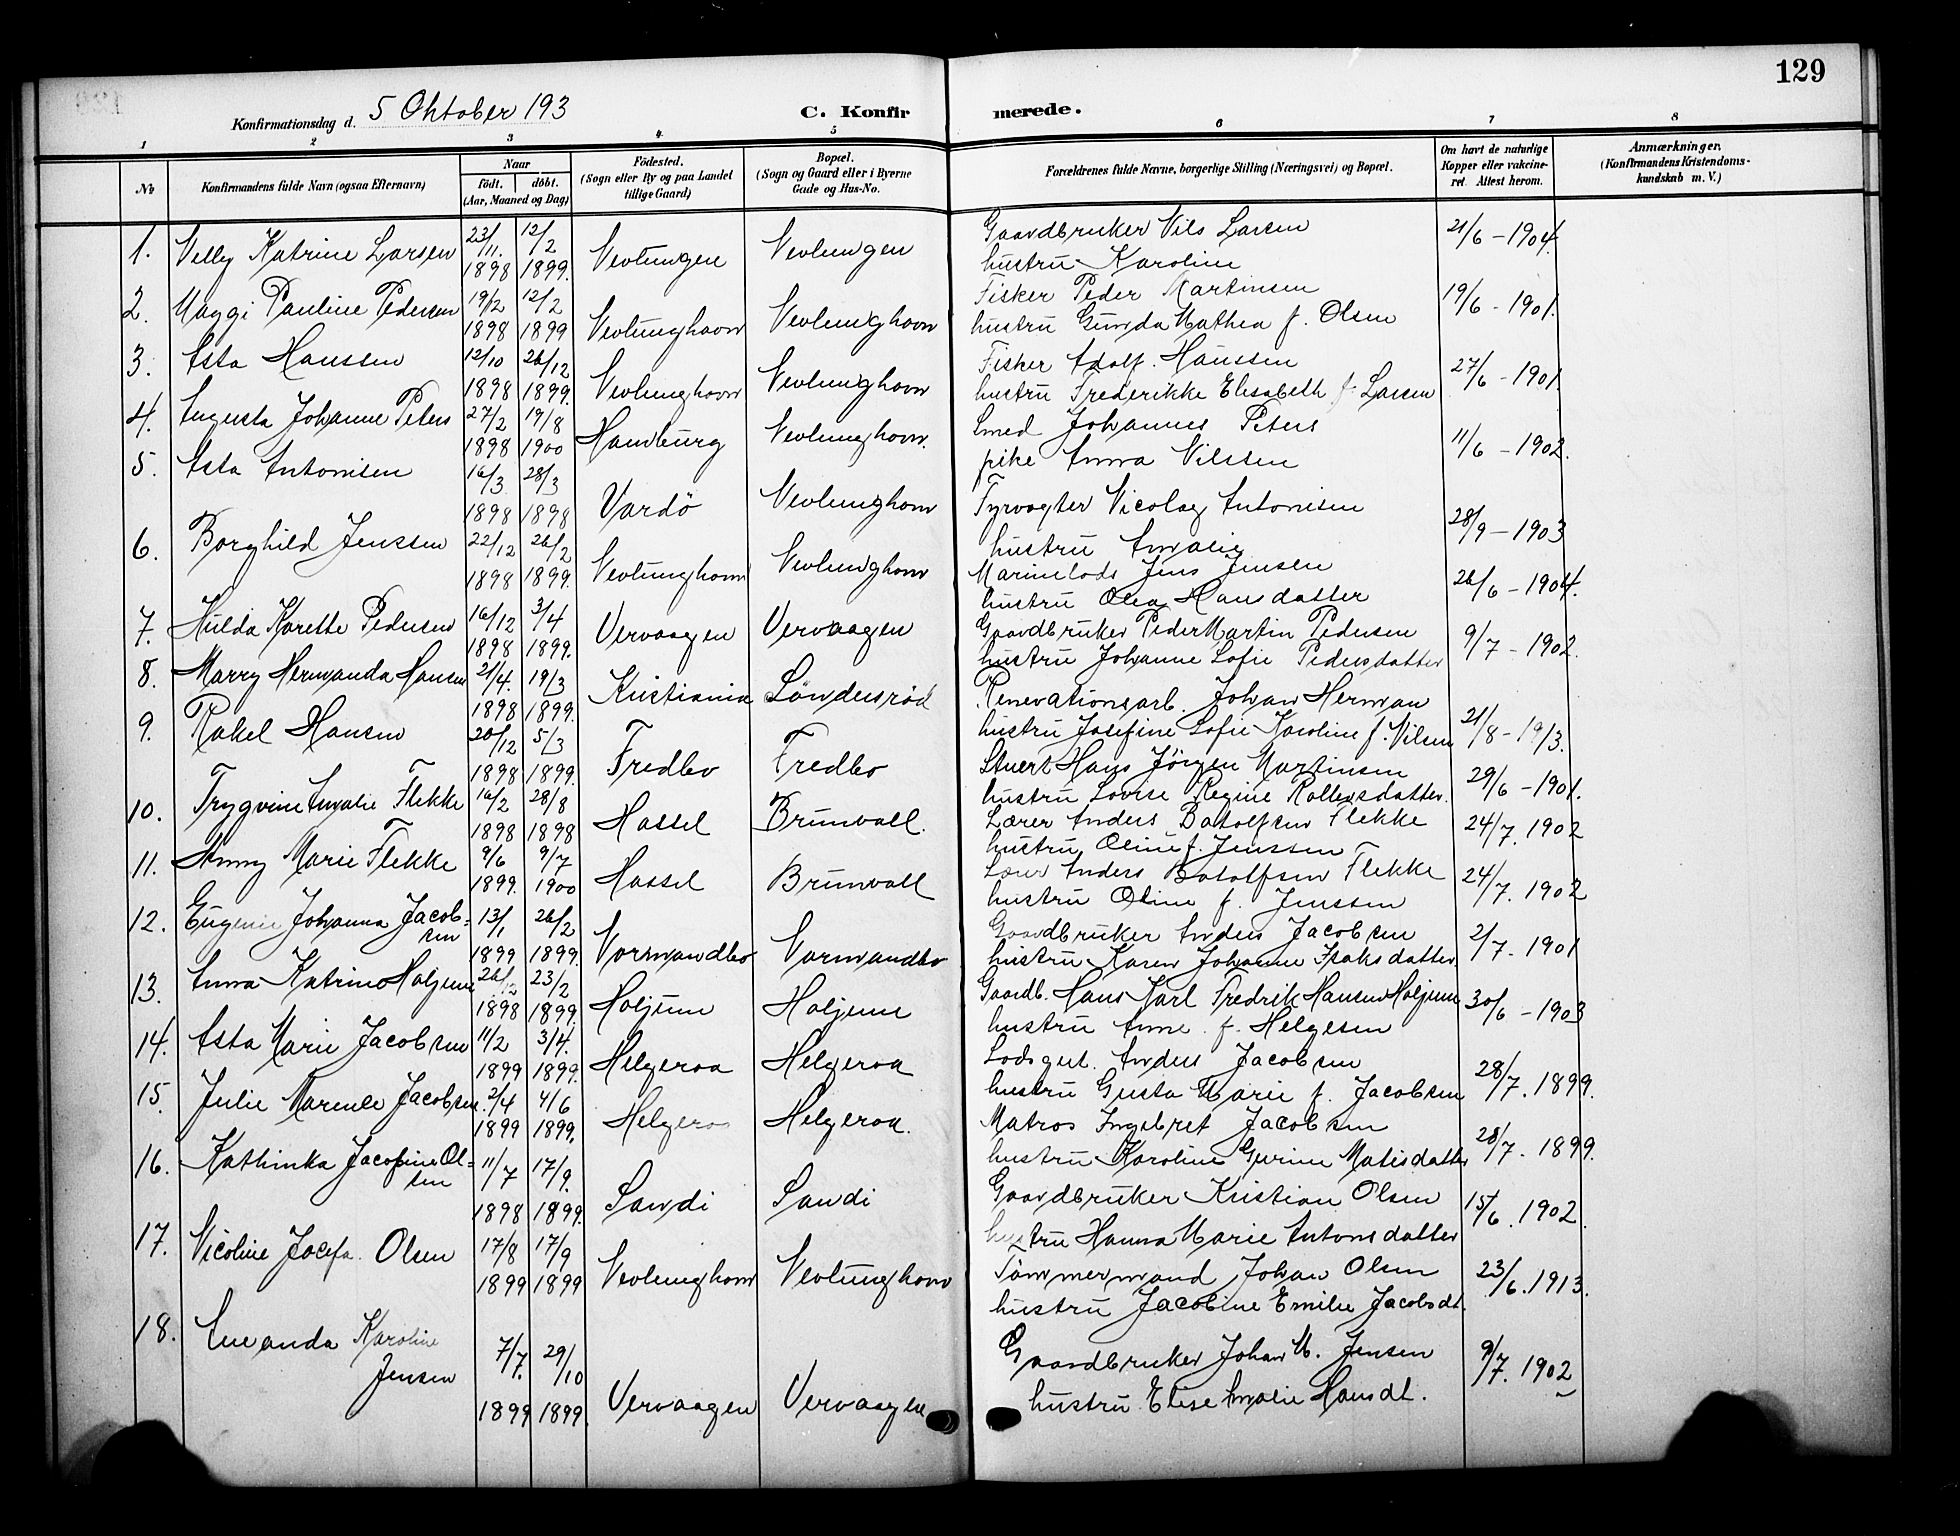 129
Konfirmationsdag d. 5 Oktober 193
C. Konfirmerede.
1 2 3 4 5 6 7 8
No
Konfirmandens fulde Navn (ogsaa Efternavn)
Naar
født. døbt.
(Aar, Maaned og Dag)
Fødested.
(Sogn eller By og paa Landet
tillige Gaard)
Bopæl.
(Sogn og Gaard eller i Byerne
Gade og Hus-No.
Forældrenes fulde Navne, borgerlige Stilling (Næringsvei) og Bopæl.
Om havt de naturlige
Kopper eller vakcine-
ret. Attest herom.
Anmærkninger.
(Konfirmandens Kristendoms-
kundskab m. V.)
1. Nelly Katrine Larsen 23/11. 1898 12/2 1899. Nevlungen Nevlungen Gaardbruker Nils Larsen 21/6 - 1904.
hustru Karoline
2. Maggi Pauline Pedersen 19/2 1898 12/2 1899 Nevlunghavn Nevlunghavn Fisker Peder Martinsen 19/6 - 1901.
hustru Gunda Mathea f. Olsen
3. Asta Hanssen 12/10 1898 26/12 1899. Nevlunghavn Nevlunghavn Fisker Adolf Hanssen 27/6 - 1901.
hustru Frederikke Elisabeth f. Larsen
4. Augusta Johanne Peters 27/2 1898 19/8 1900 Hamburg Nevlunghavn. Smed Johannes Peters 11/6 - 1902.
pike Anna Nilssen
5. Asta Antonisen 16/3 1898 28/3 1898 Vardö Nevlunghavn Fyrvogter Nicolay Antonisen 28/9 - 1903
hustru Amalie
6. Borghild Jenssen 22/12 1898 26/2 1899. Nevlunghavn Nevlunghavn Marinelods Jens Jensen 26/6 - 1904.
hustru Olea Hansdatter
7. Hulda Karette Pedersen 16/12 1898 3/4 1899. Vervaagen Vervaagen Gaardbruker Peder Martin Pedersen 9/7 - 1902.
hustru Johanne Sofie Pedersdatter
8. Marry Hermanda Hansen 21/4. 1898 19/3 1899. Kristiania Söndersröd Renovationsarb. Johan Herman 21/8 - 19/3.
hustru Josefine Sofie Karoline f. Nilsen
9. Rakel Hansen 20/12 1898 5/3 1899. Fredbo Fredbo Stuert Hans Jörgen Martinsen 29/6 - 1901.
hustru Lovise Regine Rollefsdatter.
10. Trygvine Amalie Flekke 16/2 1898 28/8 1898 Hassel Brunvall. Lærer Anders Botolfsen Flekke 24/7. 1902
hustru Oline f. Jenssen
11. Anny Marie Flekke 9/6 1899. 9/7 1900 Hassel Brunvall Lærer Anders Botolfsen Flekke 24/7. 1902
hustru Oline f. Jenssen
12. Eugenie Johanna Jacob=
sen 13/1 1899 26/2 1899. Normandbo Normandbo Gaardbruker Anders Jacobsen 2/7. 1901
hustru Karen Johanne Isaksdatter
13. Anna Katrine Holjem 26/12 1898 23/2 1899. Holjem Holjem Gaardb. Hans Karl Fredrik Hansen Holjem 30/6 - 1903
hustru Anne f. Helgesen
14. Asta Marie Jacobsen 11/2 1899 3/4. 1899. Helgeroa Helgeroa Lodsgut. Anders Jacobsen 28/7. 1899.
hustru Gusta Marie f. Jacobsen
15. Julie Marence Jacobsen. 2/4 1899 4/6 1899. Helgeroa Helgeroa. Matros Ingebret Jacobsen 28/7. 1899.
hustru Karoline Gurine Matisdatter
16. Kathinka Jacobine Ol=
sen 11/7 1898 17/9. 1899. Sandi Sandi Gaardbruker Kristian Olsen 15/6. 1902.
hustru Hanna Marie Antonsdatter
17. Nicoline Josefa Olsen 17/8 1899 17/9 1899 Nevlunghavn Nevlunghavn Tömmermand Johan Olsen 23/6. 1913.
hustru Jacobine Emilie Jacobsdt.
18. Amanda Karoline
Jensen 7/7. 1899 29/10 1899. Vervaagen Vervaagen Gaardbruker Johan M. Jensen 9/7. 1902
hustru Elise Amalie Hansdt.